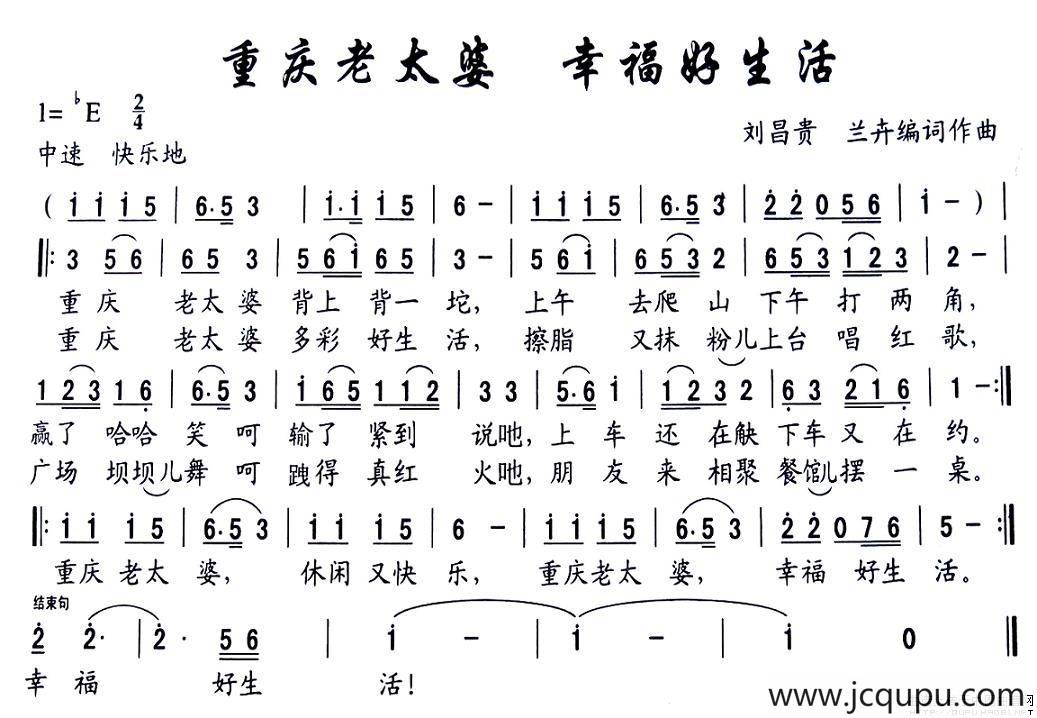 重庆老太婆 幸福好生活
1=♭E 2/4
刘昌贵 兰卉编词作曲
中速 快乐地
( i i i 5 | 6·5 3 | i·i i 5 | 6 – | i i i 5 | 6·5 3 | 2 2 0 5 6 | i – ) |
‖: 3 5 6 | 6 5 3 | 5 6 i 6 5 | 3 – | 5 6 i | 6 5 3 2 | 6 5 3 1 2 3 | 2 – |
重庆 老太婆 背上 背一 坨, 上午 去爬 山 下午 打 两 角,
重庆 老太婆 多彩 好生 活, 擦脂 又抹 粉儿上台 唱 红 歌,
1 2 3 1 6 | 6·5 3 | i 6 5 1 1 2 | 3 3 | 5·6 i | 1 2 3 2 | 6 3 2 1 6 | 1 – :‖
赢了 哈哈 笑 呵 输了 紧到 说吔, 上 车 还 在觖 下车 又 在 约。
广场 坝坝儿舞 呵 跩得 真红 火吔, 朋 友 来 相聚 餐馆儿摆 一 桌。
‖: i i i 5 | 6·5 3 | i i i 5 | 6 – | i i i 5 | 6·5 3 | 2 2 0 7 6 | 5 – :‖
重庆 老太 婆, 休闲 又快 乐, 重庆老太 婆, 幸福 好生 活。
结束句
2 2· | 2· 5 6 | i | i | i 0 ‖
幸 福 好生 活!
www.jcqupu.com